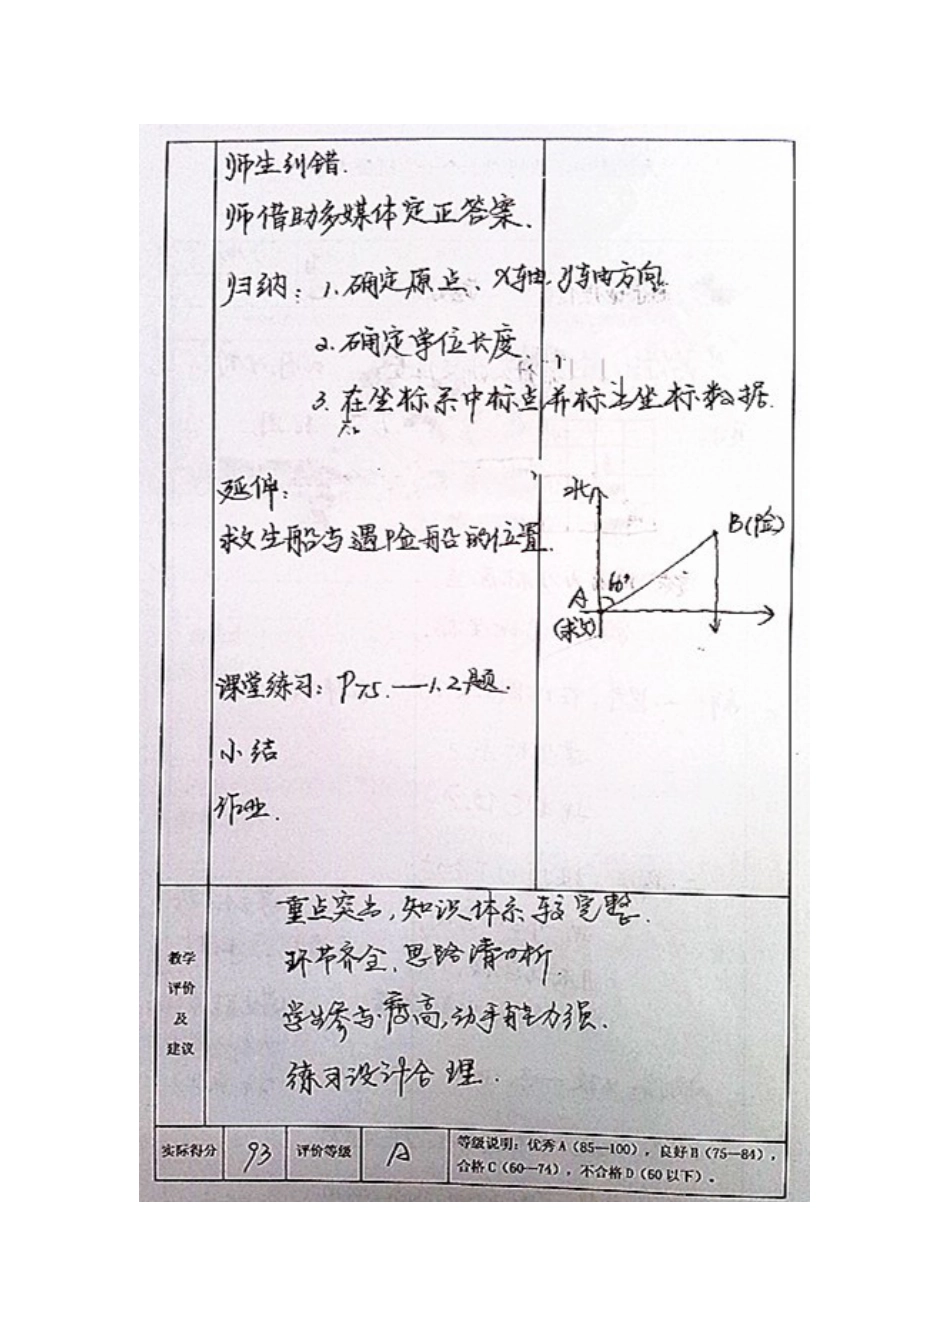 师生纠错.
师借助多媒体定正答案.
归纳：1.确定原点、x轴.y轴方向
2.确定单位长度.
3.在坐标系中标点并标注坐标数据.
延伸：
救生船与遇险船的位置.
北
B(险)
60°
A
(救)
课堂练习：P75.—1.2题.
小结
作业.
重点突出,知识体系较完整.
环节齐全,思路清晰
学生参与度高,动手能力强.
练习设计合理.
教学
评价
及
建议
实际得分 93 评价等级 A
等级说明：优秀A（85—100），良好B（75—84），
合格C（60—74），不合格D（60以下）。